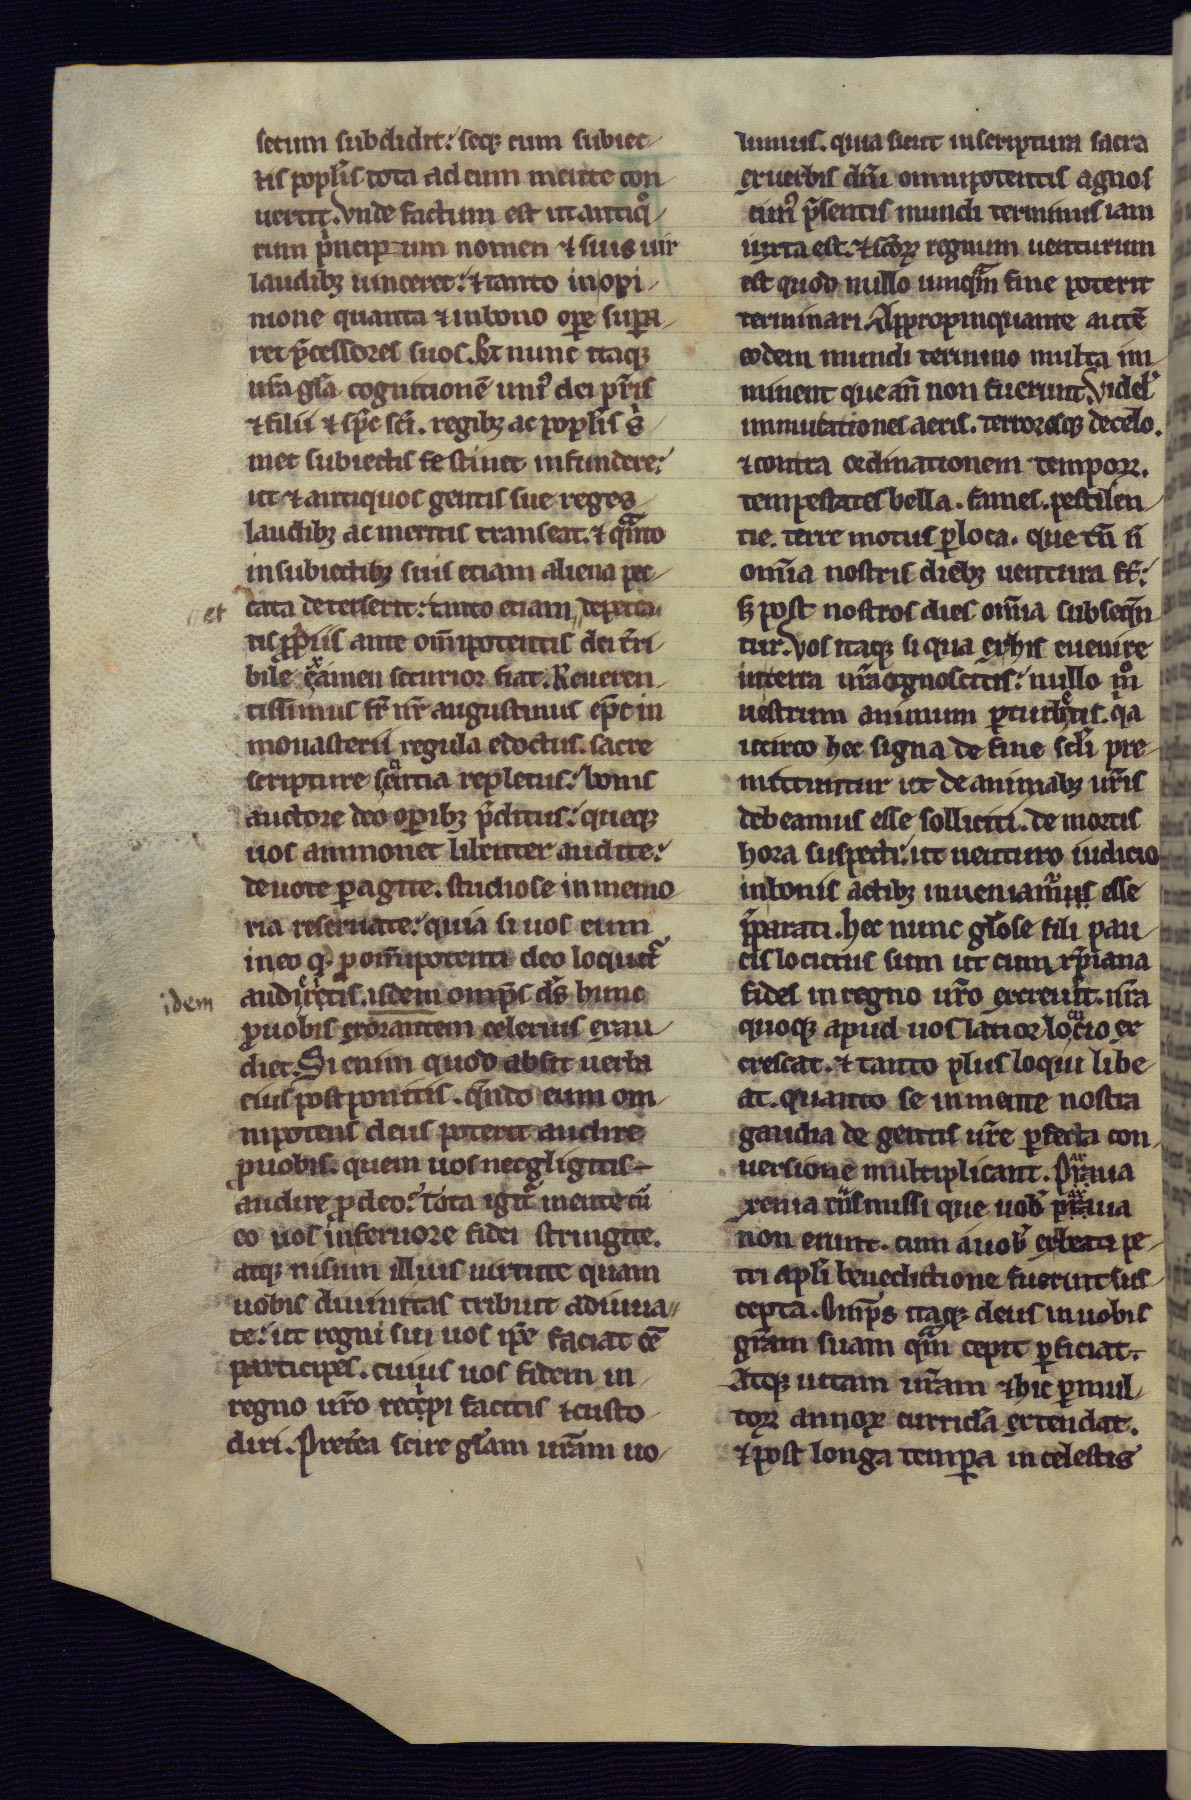 secum subdidit: seqꝫ cum subiec-
tis popl̄is tota ad eum mente con
uertit. Vnde factum est ut antiqͦ-
rum pͥncipum nomen ⁊ suis uir
laudibꝫ uinceret: ⁊ tanto in opi-
nione quanta ⁊ in bono oꝑe suꝑa-
ret p̄cessores suos. Et nunc itaqꝫ
ur̄a gl̄a cognitionē uniꝰ dei pr̄is
⁊ filii ⁊ sp̄c sc̄i. regibꝫ ac popl̄is sͥ-
met subiectis festinet infundere:
ut ⁊ antiquos gentis sue reges
laudibꝫ ac meritis transeat. ⁊ qͣnto
in subiectibꝫ suis etiam aliena pec-
et
cata deterserit: tanto etiam de pecca-
tis ꝓpͥis ante om̄ipotentis dei t̄ri
bile examen securior fiat. Reueren-
tissimus fr̄ nr̄ augustinus ep̄c in
monasterii regula edoctus. sacre
scripture scͣntia repletus: bonis
auctore deo oꝑibꝫ p̄ditus: queqꝫ
uos ammonet libenter audite:
deuote ꝑagite. studiose in memo
ria reseruate: quia si uos eum
in eo qͩ ꝓ om̄ipotenti deo loquit̄
idem
audiretis. isdem omp̄s ds̄ hunc
ꝓ uobis exorantem celerius exau-
diet. Si enim quod absit uerba
eius postponitis. qͣndo eum om-
nipotens deus poterit audire
ꝓ uobis. quem uos necgligitis
audire ꝓ deo? Tota igit̄ mente cū
eo uos in feruore fidei stringite.
atqꝫ nisum illius uirtute quam
uobis diuinitas tribuit adiuua-
te: ut regni sui uos ip̄e faciat eē
participes. cuius uos fidem in
regno ur̄o recipi facitis ⁊ custo-
diri. Pret̄ea scire gl̄am ur̄am uo-
lumus. quia sicut in scriptura sacra
ex uerbis dn̄i omnipotentis agnos
cimꝰ p̄sentis mundi terminus iam
iuxta est. ⁊ sc̄oꝝ regnum uenturum
est quod nullo unqͣm fine poterit
terminari. Appropinquante autē
eodem mundi termino multa im
minent que an̄ non fuerunt. Videlꝫ
immutationes aeris. terroresqꝫ de celo.
⁊ contra ordinationem temporꝝ.
tempestates bella. fames. pestilen-
tie. terre motus ꝑ loca. que tn̄ n̄
omīa nostris diebꝫ uentura st̄:
sꝫ post nostros dies omīa subseqn̄
tur. Vos itaqꝫ si qua ex his euenire
in terra ur̄a cognoscitis: nullo mͦ
uestrum animum ꝑturbetis. qͥa
iccirco hec signa de fine sc̄li pre-
mittuntur ut de animabꝫ ur̄is
debeamus esse solliciti. de mortis
hora suspecti. ut uenturo iudicio
in bonis actibꝫ inueniamus esse
p̄parati. Hec nunc gl̄ose fili pau-
cis locutus sum ut cum xp̄iana
fides in regno ur̄o excreuit. nr̄a
quoqꝫ apud uos latior locutio ex
crescat. ⁊ tanto plus loqui libe-
at. quanto se in mente nostra
gaudia de gentis ur̄e ꝑfecta con-
uersione multiplicant. Praua
xenia trͣnsmissi que uob̄ praua
non erunt. cum a uob̄ ex beati pe-
tri apl̄i benedictione fuerint sus-
cepta. Omp̄s itaqꝫ deus in uobis
gr̄am suam qͣm cepit ꝑficiat.
Atqꝫ uitam ur̄am ⁊ hic ꝑ mul-
toꝝ annoꝝ curricl̄a extendat.
⁊ post longa temꝑa in celestis